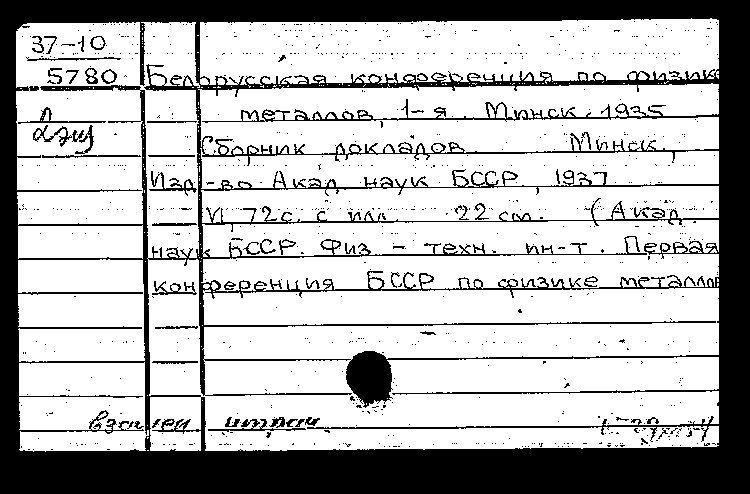 37-10
5780 Белорусская конференция по физике
металлов, 1-я. Минск. 1935
Сборник докладов. Минск,
Изд-во Акад. наук БССР, 1937
VI, 72 с. с илл. 22 см. (Акад.
наук БССР. Физ-техн. ин-т. Первая
конференция БССР по физике металлов
взамен